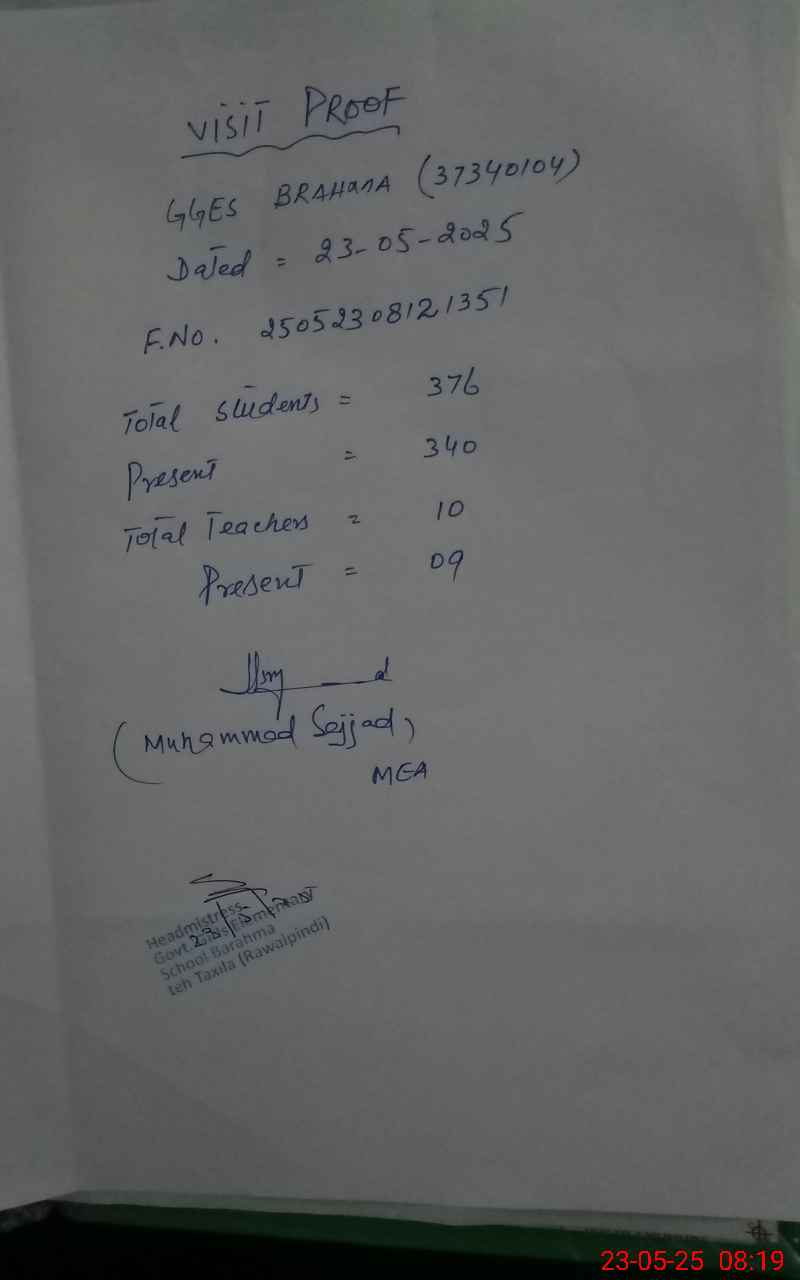 VISIT PROOF
GGES BRAHMA (37340104)
Dated = 23-05-2025
F.No. 25052308121351
Total Students = 376
Present = 340
Total Teachers = 10
Present = 09
(Muhammad Sajjad)
MEA
Headmistress
Govt. Girls Elementary
School Barahma
teh Taxila (Rawalpindi)
23-05-25 08:19